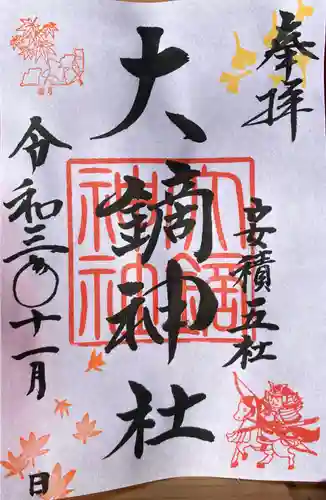 奉拝
安積五社
大鏑神社
大鏑神社
令和三年十一月
日